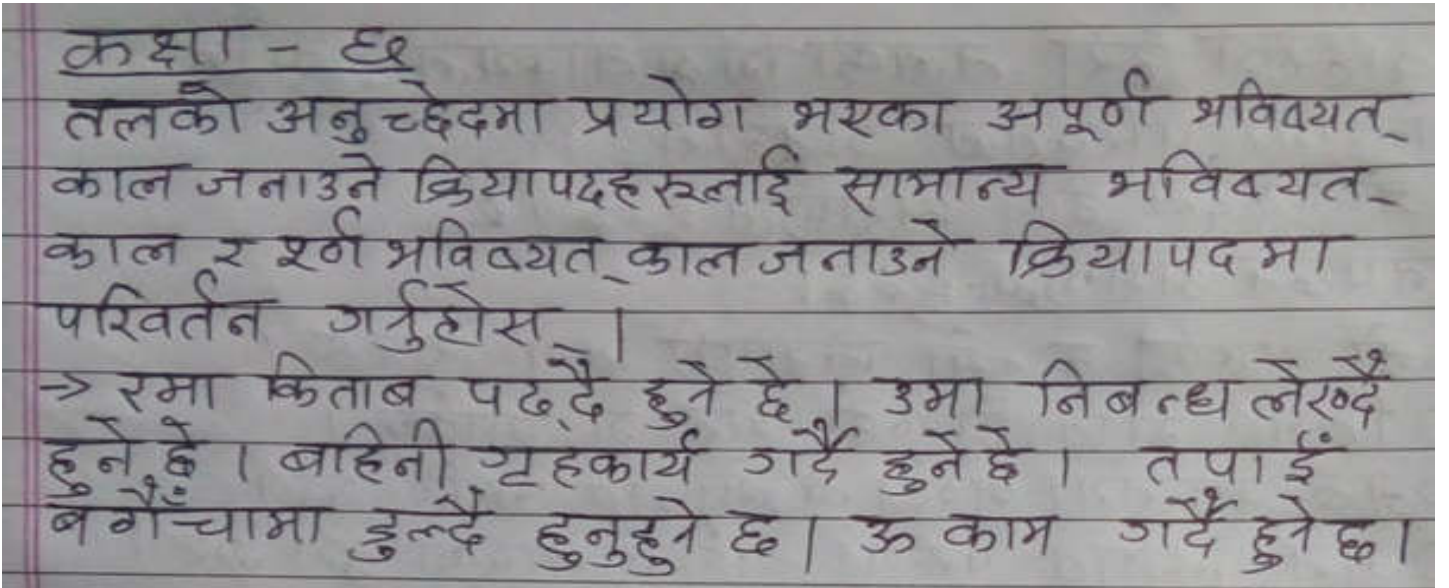 कक्षा - छ
तलको अनुच्छेदमा प्रयोग भएका अपूर्ण भविष्यत्
काल जनाउने क्रियापदहरूलाई सामान्य भविष्यत्
काल र पूर्ण भविष्यत् काल जनाउने क्रियापदमा
परिवर्तन गर्नुहोस् ।
→ रमा किताब पढ्दै हुने छे । उमा निबन्ध लेख्दै
हुने छे । बहिनी गृहकार्य गर्दै हुने छे । तपाईँ
बगैँचामा डुल्दै हुनुहुने छ । ऊ काम गर्दै हुने छ ।